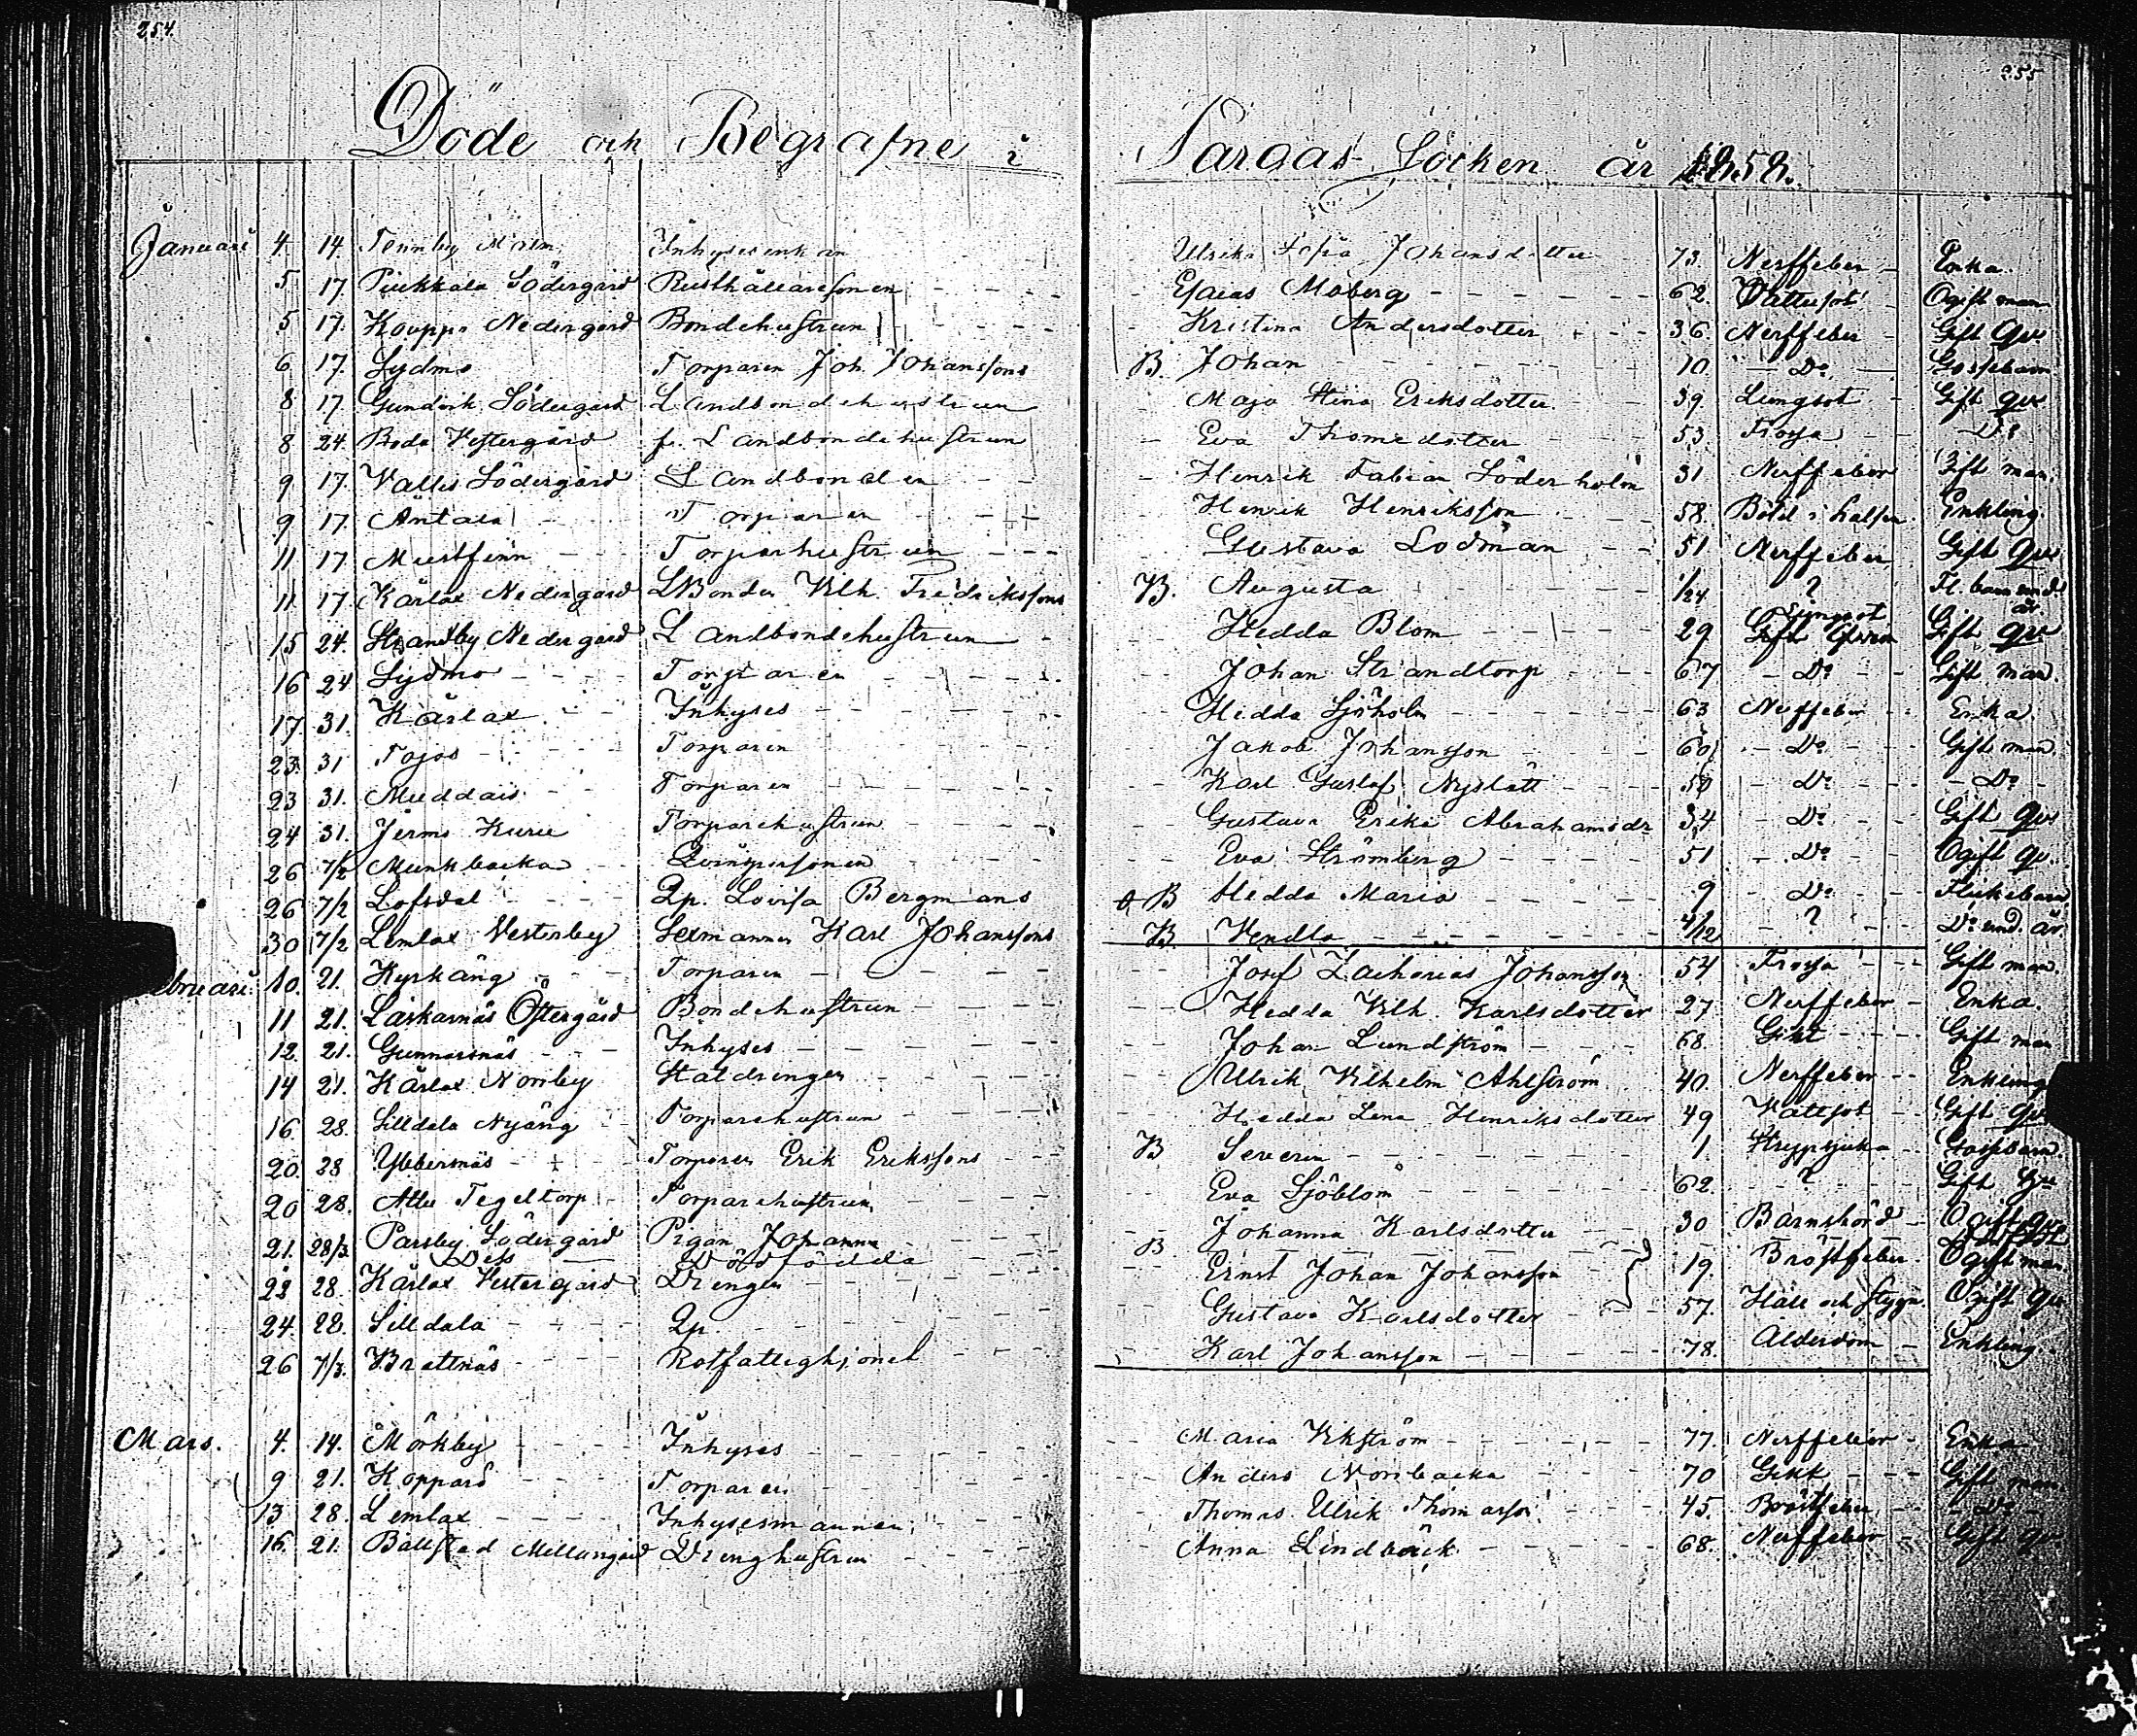 254.
255
Döde och Begrafne i Pargas Socken år 1858.
Januari 4. 14. Tennby Malm Inhysesenkan Ulrika Sofia Johansdotter 73. Nerffeber Enka.
5 17. Piukkala Södergård Rusthållaresonen Esaias Moberg 62. Vattusot Ogift man
5 17. Kouppo Nedergård Bondehustrun Kristina Andersdotter 36. Nerffeber Gift Qv
6 17. Lydmo Torparen Joh. Johanssons B. Johan 10. Do Gossebarn
8 17. Gundvik Södergård Landbondehustrun Maja Stina Eriksdotter 39. Lungsot Gift qv
8 24. Boda Vestergård f. Landbondehustrun Eva Thomedotter 53. Frossa Do
9 17. Vallis Södergård Landbonden Henrik Fabian Söderholm 31 Nerffeber Gift man.
9 17. Antais Torparen Henrik Henriksson 58. Böld i halsen Enkling.
11 17 Mustfinn Torparhustrun Gustava Lodman 51 Nerffeber Gift Qv
11 17 Kårlax Nedergård LBonden Vilh. Fredrikssons B. Augusta 1/24 ? Fl. barn und. år.
15 24. Strandby Nedergård Landbondehustrun Hedda Blom 29 Lungsot Gift qv
16 24 Lydmo Torparen Johan Strandtorp 67 Do Gift man.
17. 31. Kårlax Inhyses Hedda Sjöholm 63 Nerffeber Enka.
23. 31 Tojos Torparen Jakob Johansson 60 Do Gift man.
23 31. Muddais Torparen Karl Gustaf Nyslätt 50 Do Do
24 31. Jermo Kuru Torparehustrun Gustava Erika Abrahamsdr 34 Do Gift Qv
26 7/2 Munkbacka Qvinspersonen Eva Strömberg 51 Do Ogift qv.
26 7/2 Lofsdal Qp. Lovisa Bergmans o. B Hedda Maria 9 Do Flickebarn
30 7/2 Lemlax Vesterby Sexmannen Karl Johanssons B. Vendla 4/12 ? Do und. år.
bruari. 10. 21. Kyrkäng Torparen Josef Zacharias Johansson 54 Frossa Gift man.
11 21. Lärkarnäs Östergård Bondehustrun Hedda Vilh. Karlsdotter 27 Nerffeber Enka.
12. 21. Gunnarsnäs Inhyses Johan Lundström 68. Gikt Gift man
14 21. Kårlax Norrby Staldrengen Ulrik Vilhelm Ahlström 40. Nerffeber Enkling
16 28. Silldala Nyäng Torparehustrun Hedda Lena Henriksdotter 49 Vattsot Gift qv
20. 28 Ybbernäs Torparen Erik Erikssons B Severin 1. Kryppsjuka Gossebarn.
20 28. Attu Tegeltorp Torparehustrun Eva Sjöblom 62. ? Gift Qv
21. 28/3. Parsby Södergård Pigan Johanna Johanna Karlsdotter 30 Barnsbörd Ogift qv
Dets Dödfödda B
22 28. Kårlax Vestergård Drengen Ernst Johan Johansson 19. Bröstfeber Ogift man
24. 28. Silldala Qp. Gustava Karlsdotter 57. Håll och stygn. Ogift Qv
26 7/3. Brattnäs Rotfattighjonet Karl Johansson 78. Ålderdom Enkling.
Mars. 4. 14. Mörkby Inhyses Maria Vikström 77. Nerffeber Enka
9 21. Kopparö Torparen Anders Norrbacka 70 Gikt Gift man.
13 28. Lemlax Inhysesmannen Thomas Ulrik Thomasson 45. Bröstfeber Do
16. 21. Bällstad Mellangård Drenghustrun Anna Lindbäck 68. Nerffeber Gift qv